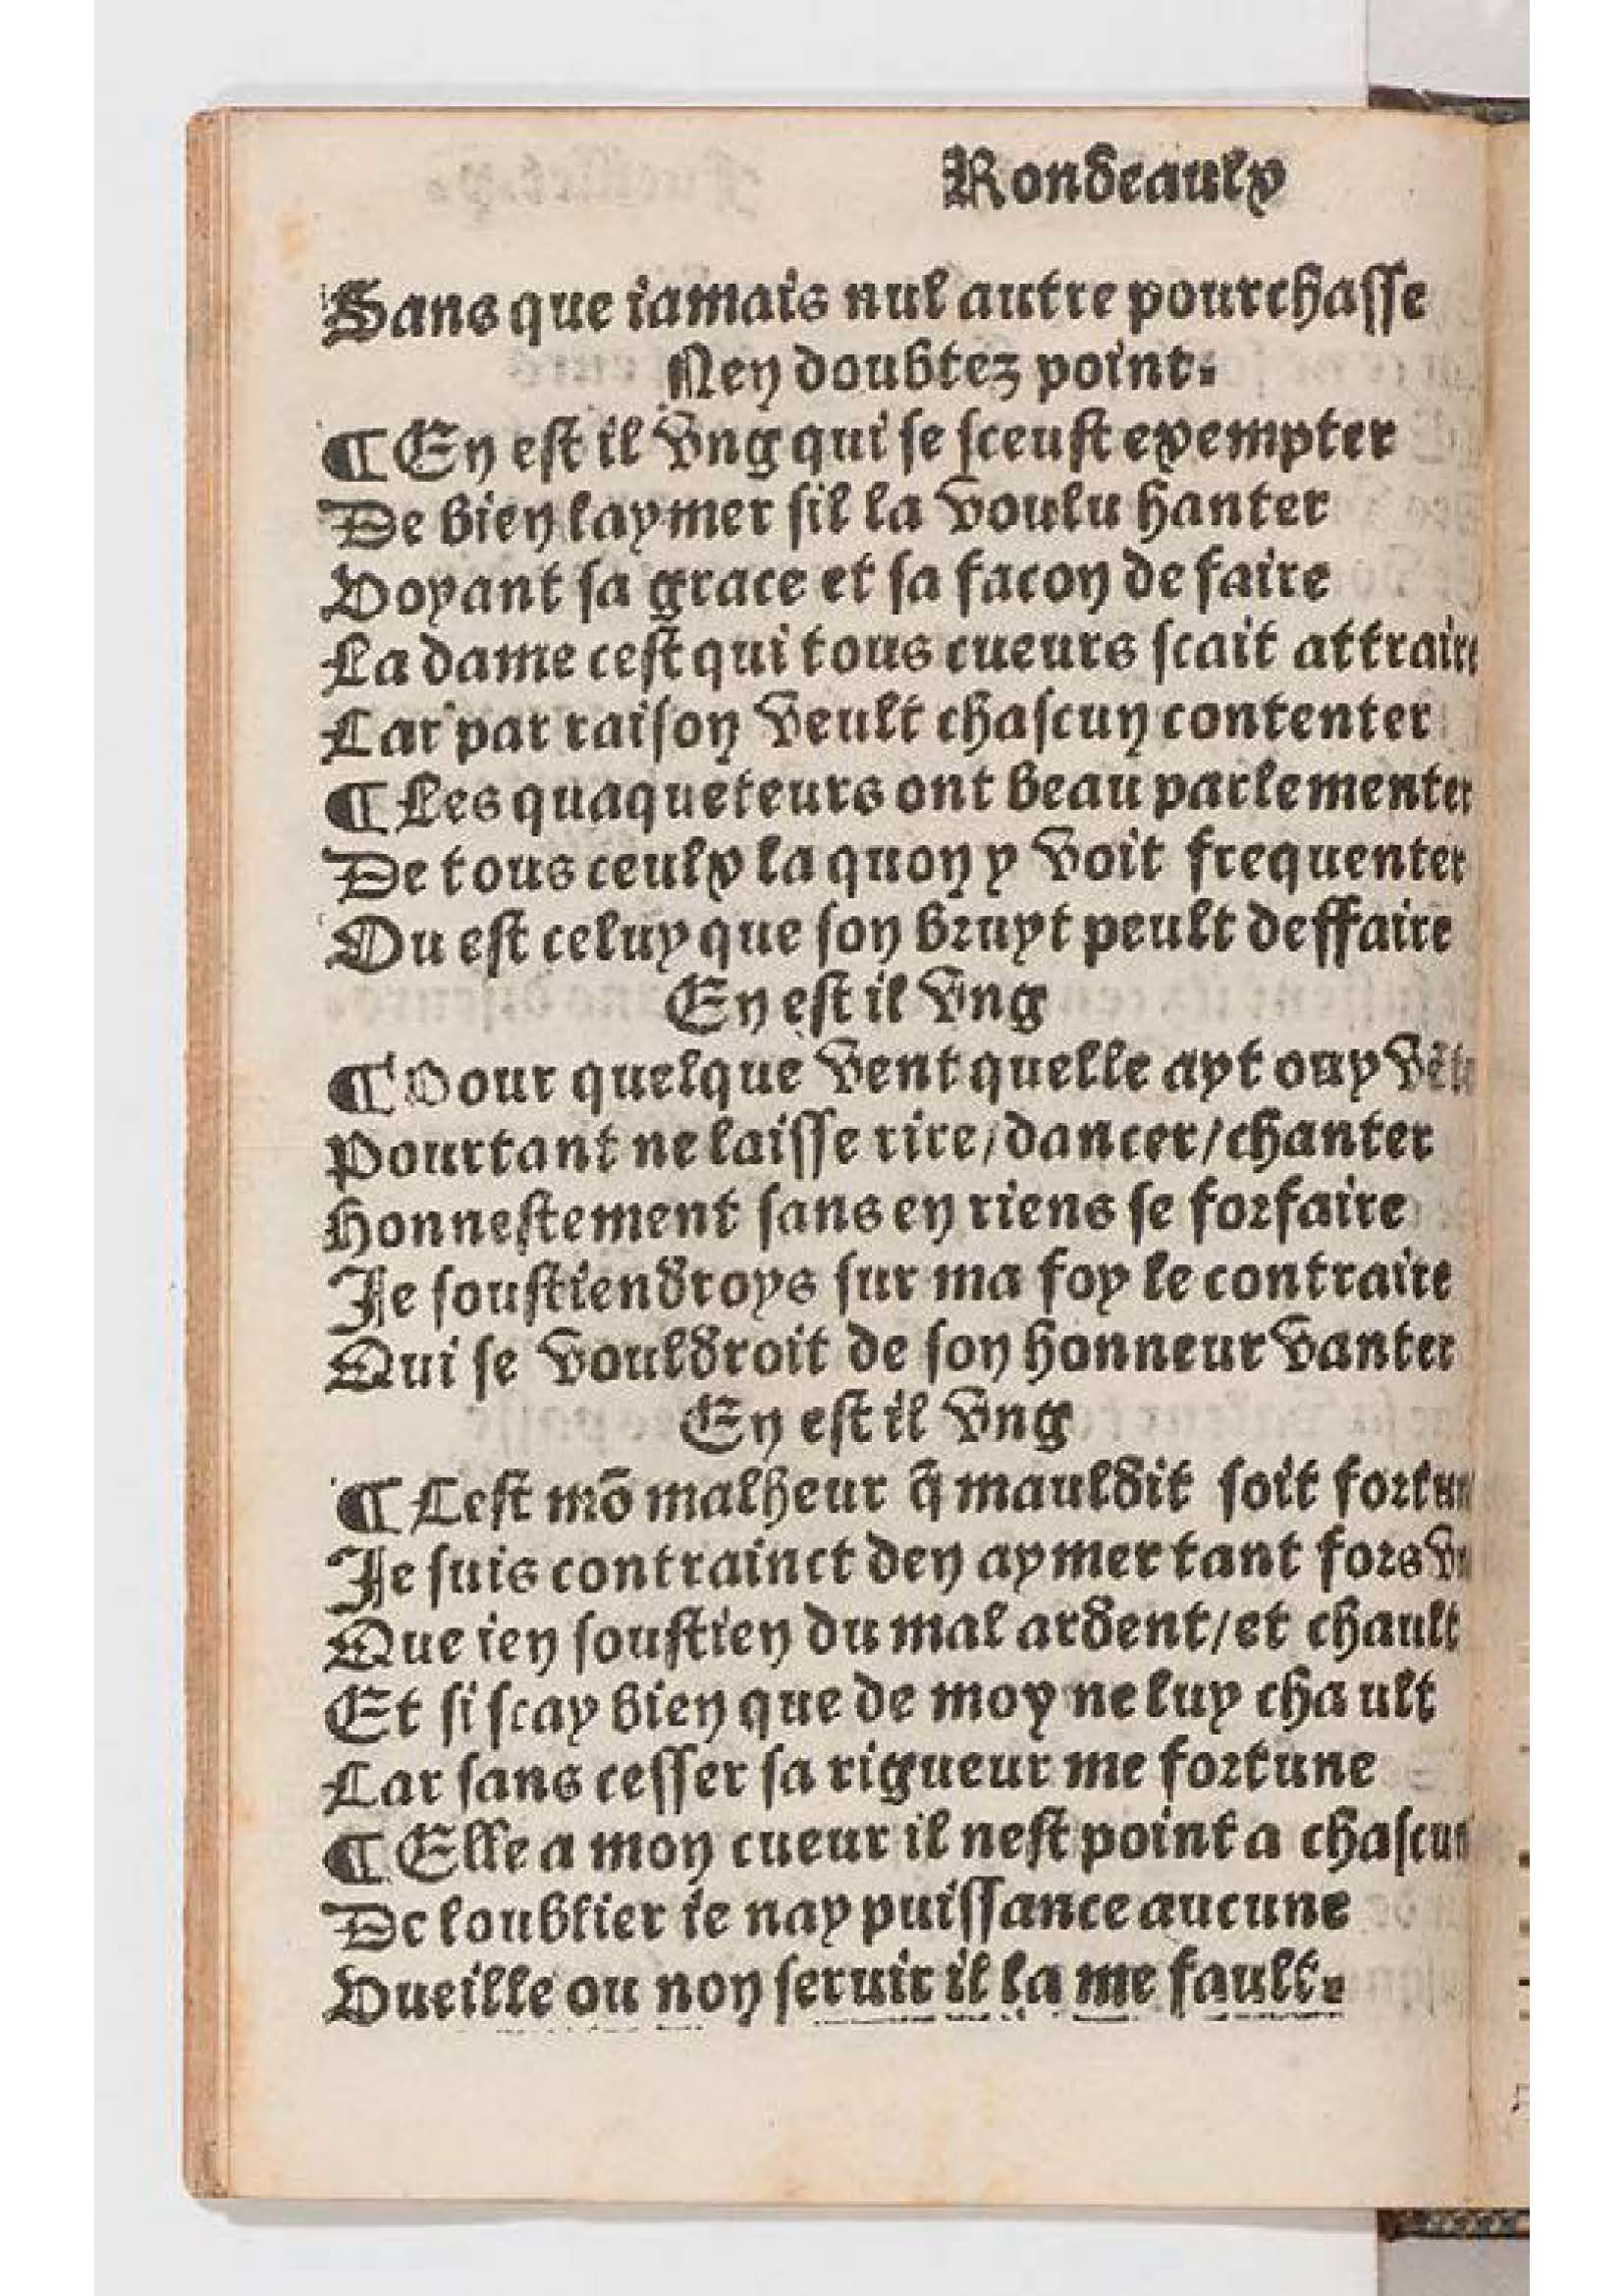 Rondeaulx
Sans que iamais nul autre pourchasse
Nen doubtez point.
¶ En est il vng qui se sceust exempter
De bien laymer sil la voulu hanter
Voyant sa grace et sa facon de faire
La dame cest qui tous cueurs scait attraire
Car par raison veult chascun contenter
¶ Les quaqueteurs ont beau parlementer
De tous ceulx la quon y voit frequenter
Ou est celuy que son bruyt peult deffaire
En est il vng
¶ Pour quelque vent quelle ayt ouy
Pourtant ne laisse rire/dancer/chanter
Honnestement sans en riens se forfaire
Je soustiendroys sur ma foy le contraire
Qui se vouldroit de son honneur vanter
En est il vng
¶ Cest mõ malheur q̃ mauldit soit fortun
Je suis contrainct den aymer tant fors
Que ien soustien du mal ardent/et chault
Et si scay bien que de moy ne luy chault
Car sans cesser sa rigueur me fortune
¶ Elle a mon cueur il nest point a chascun
De loublier ie nay puissance aucune
Vueille ou non seruir il la me fault.